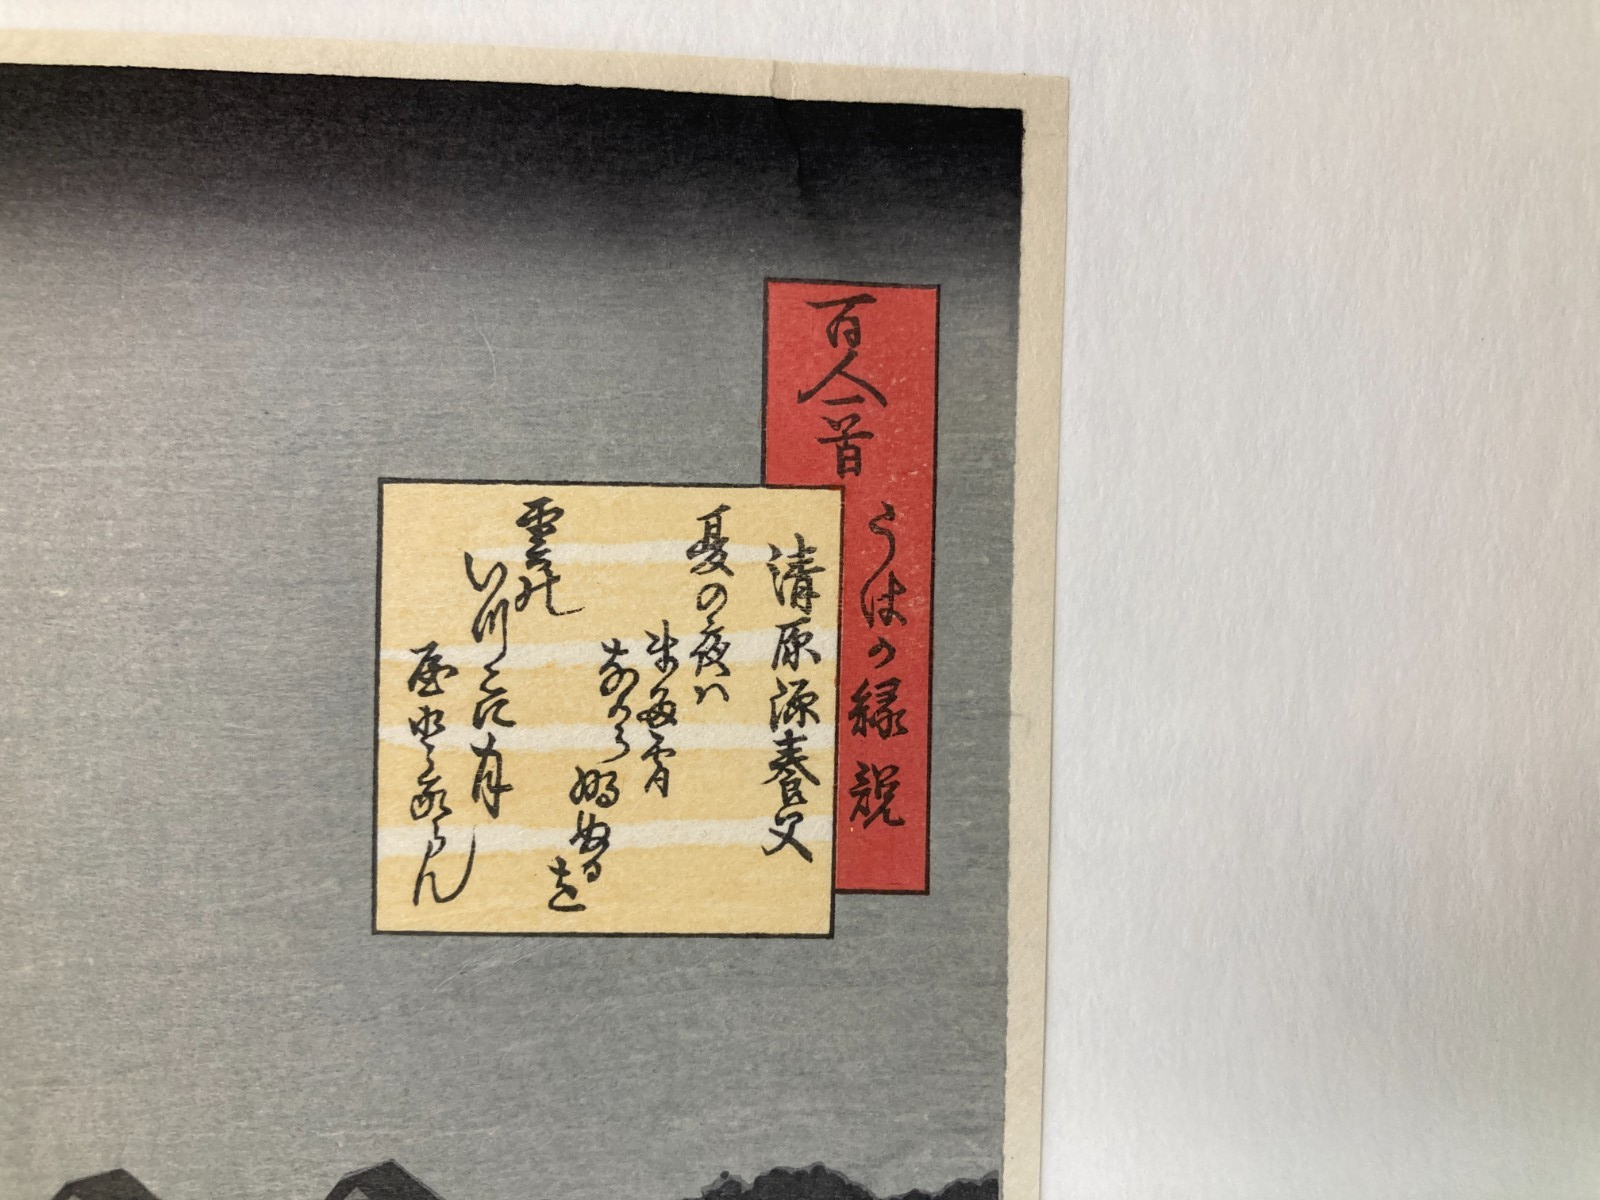 百人一首
うはか縁説
清原深養父
夏の夜ハ
まだ宵
ながら
明ぬるを
雲の
いづこに月
屋どるらん